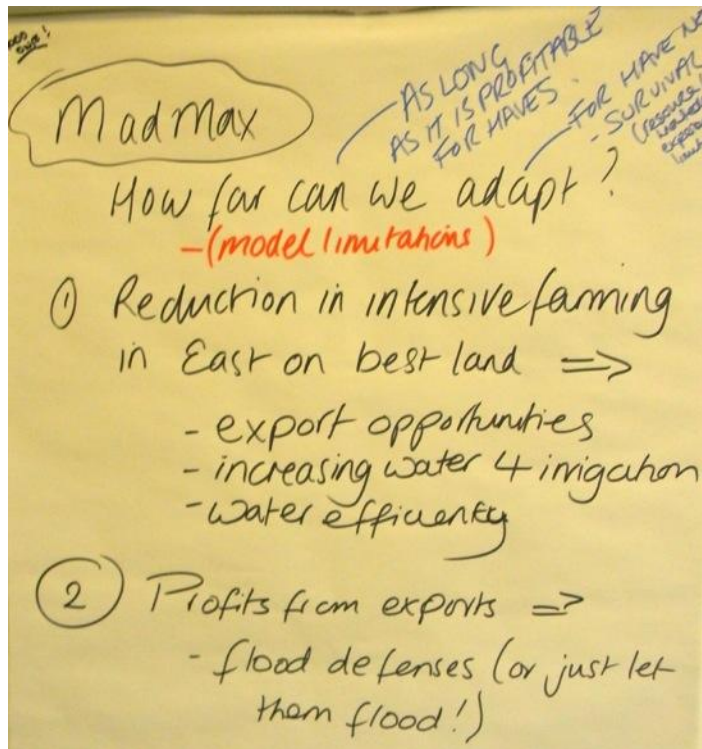 MadMax
AS LONG
AS IT IS PROFITABLE
FOR HAVES.
FOR HAVE
- SURVIVAL
How far can we adapt?
-(model limitations)
① Reduction in intensive farming
in East on best land =>
- export opportunities
- increasing water 4 irrigation
- water efficiency
② Profits from exports =>
- flood defenses (or just let
them flood!)